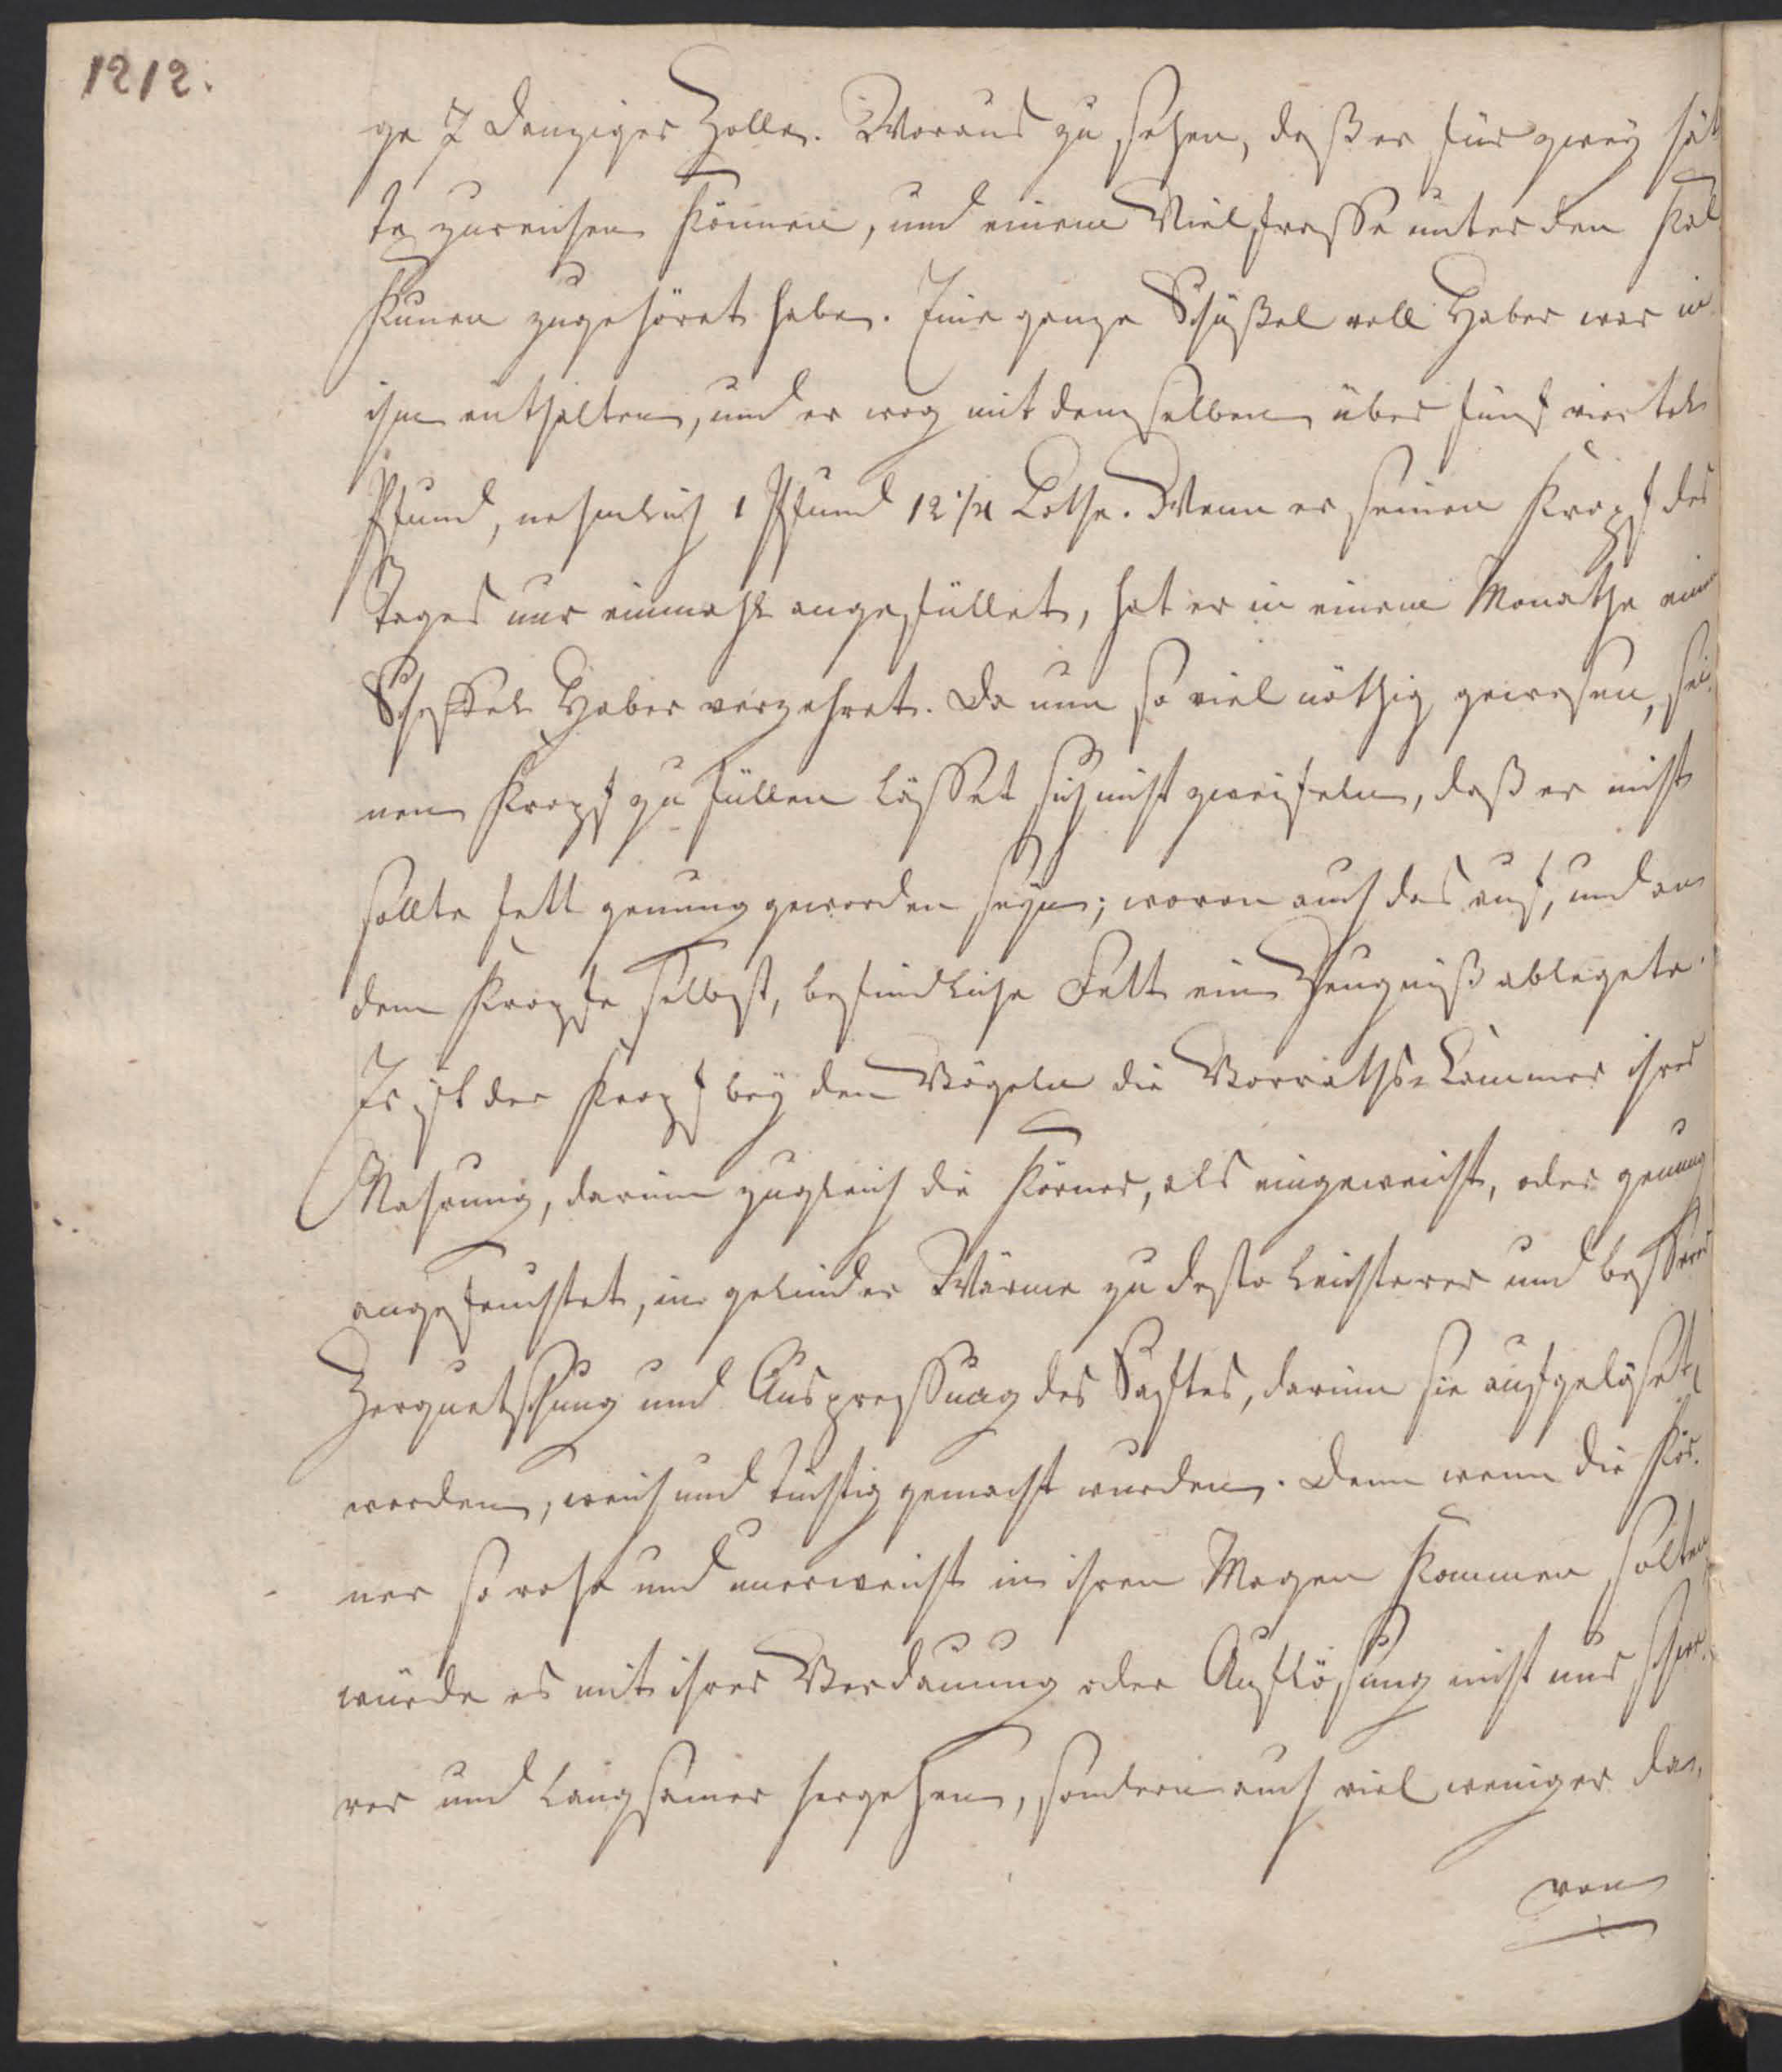 1212.
ge 7 Danziger Zolle. Woraus zu sehen, daß er für zwey hät
te zureichen können, und einem Vielfrasse unter den Kal
kunen zugehöret habe. Eine ganze Schüßel voll Haber war in
ihm enthalten, und er wog mit demselben über fünf viertel
Pfund, nehmlich 1 Pfund 12 1/4 Lothe. Wenn er seinen Kropf des
Tages nur einmahl angefüllet, hat er in einem Monathe einen
Scheffel Haber verzehret. Da nun so viel nöthig gewesen, sei
nen Kropf zu füllen lässet sich nicht zweifeln, daß er nicht
sollte fett genung geworden seyn; wovon auch das auf, und an
dem Kropfe selbst, befindliche Fett ein Zeugniß ablegete.
Es ist der Kropf bey den Vögeln die Vorraths-Kammer ihrer
Nahrung, darinn zugleich die Körner, als eingeweicht, oder genung
angefeuchtet, in gelinder Wärme zu desto leichterer und besserer
Zerquetschung und Auspressung des Saftes, darinn sie aufgelöset
werden, weich und tüchtig gemacht wurden. Denn wenn die Kör-
ner so rohe und unerweicht in ihren Magen kommen solten
würde es mit ihrer Verdauung oder Auflösung nicht nur schwe-
rer und langsamer hergehen, sondern auch viel weniger da-
von